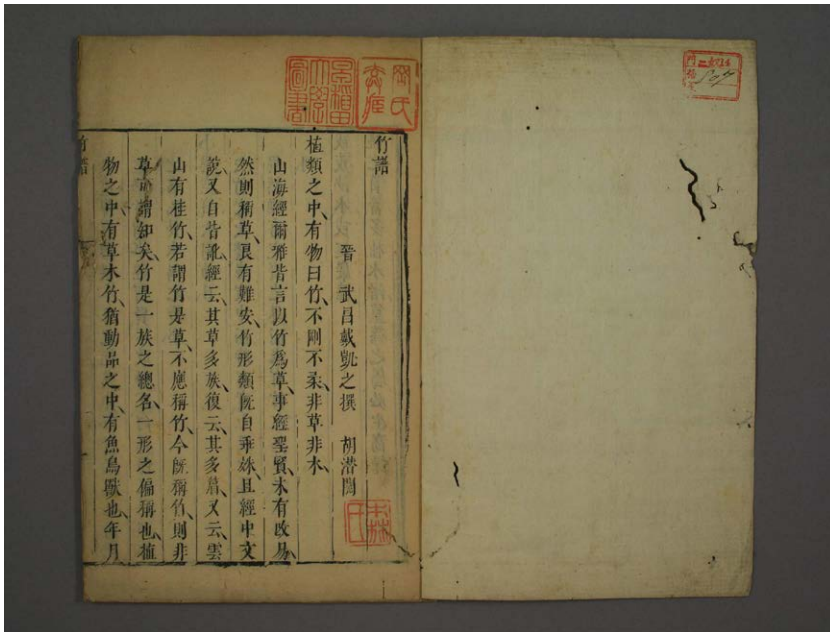 竹譜
晉 武昌戴凱之撰 胡潛閱
植類之中、有物曰竹、不剛不柔、非草非木、
山海經爾雅皆言以竹爲草、事經聖賢、未有改易、
然則稱草、良有難安、竹形類旣自乖殊、且經中文
說、又自訾訛、經云、其草多族、復云、其多簹、又云、雲
山有桂竹、若謂竹是草、不應稱竹、今旣稱竹、則非
草可謂知矣、竹是一族之總名、一形之偏稱也、植
物之中、有草木竹、猶動品之中、有魚鳥獸也、年月
竹譜
早稻田大學圖書